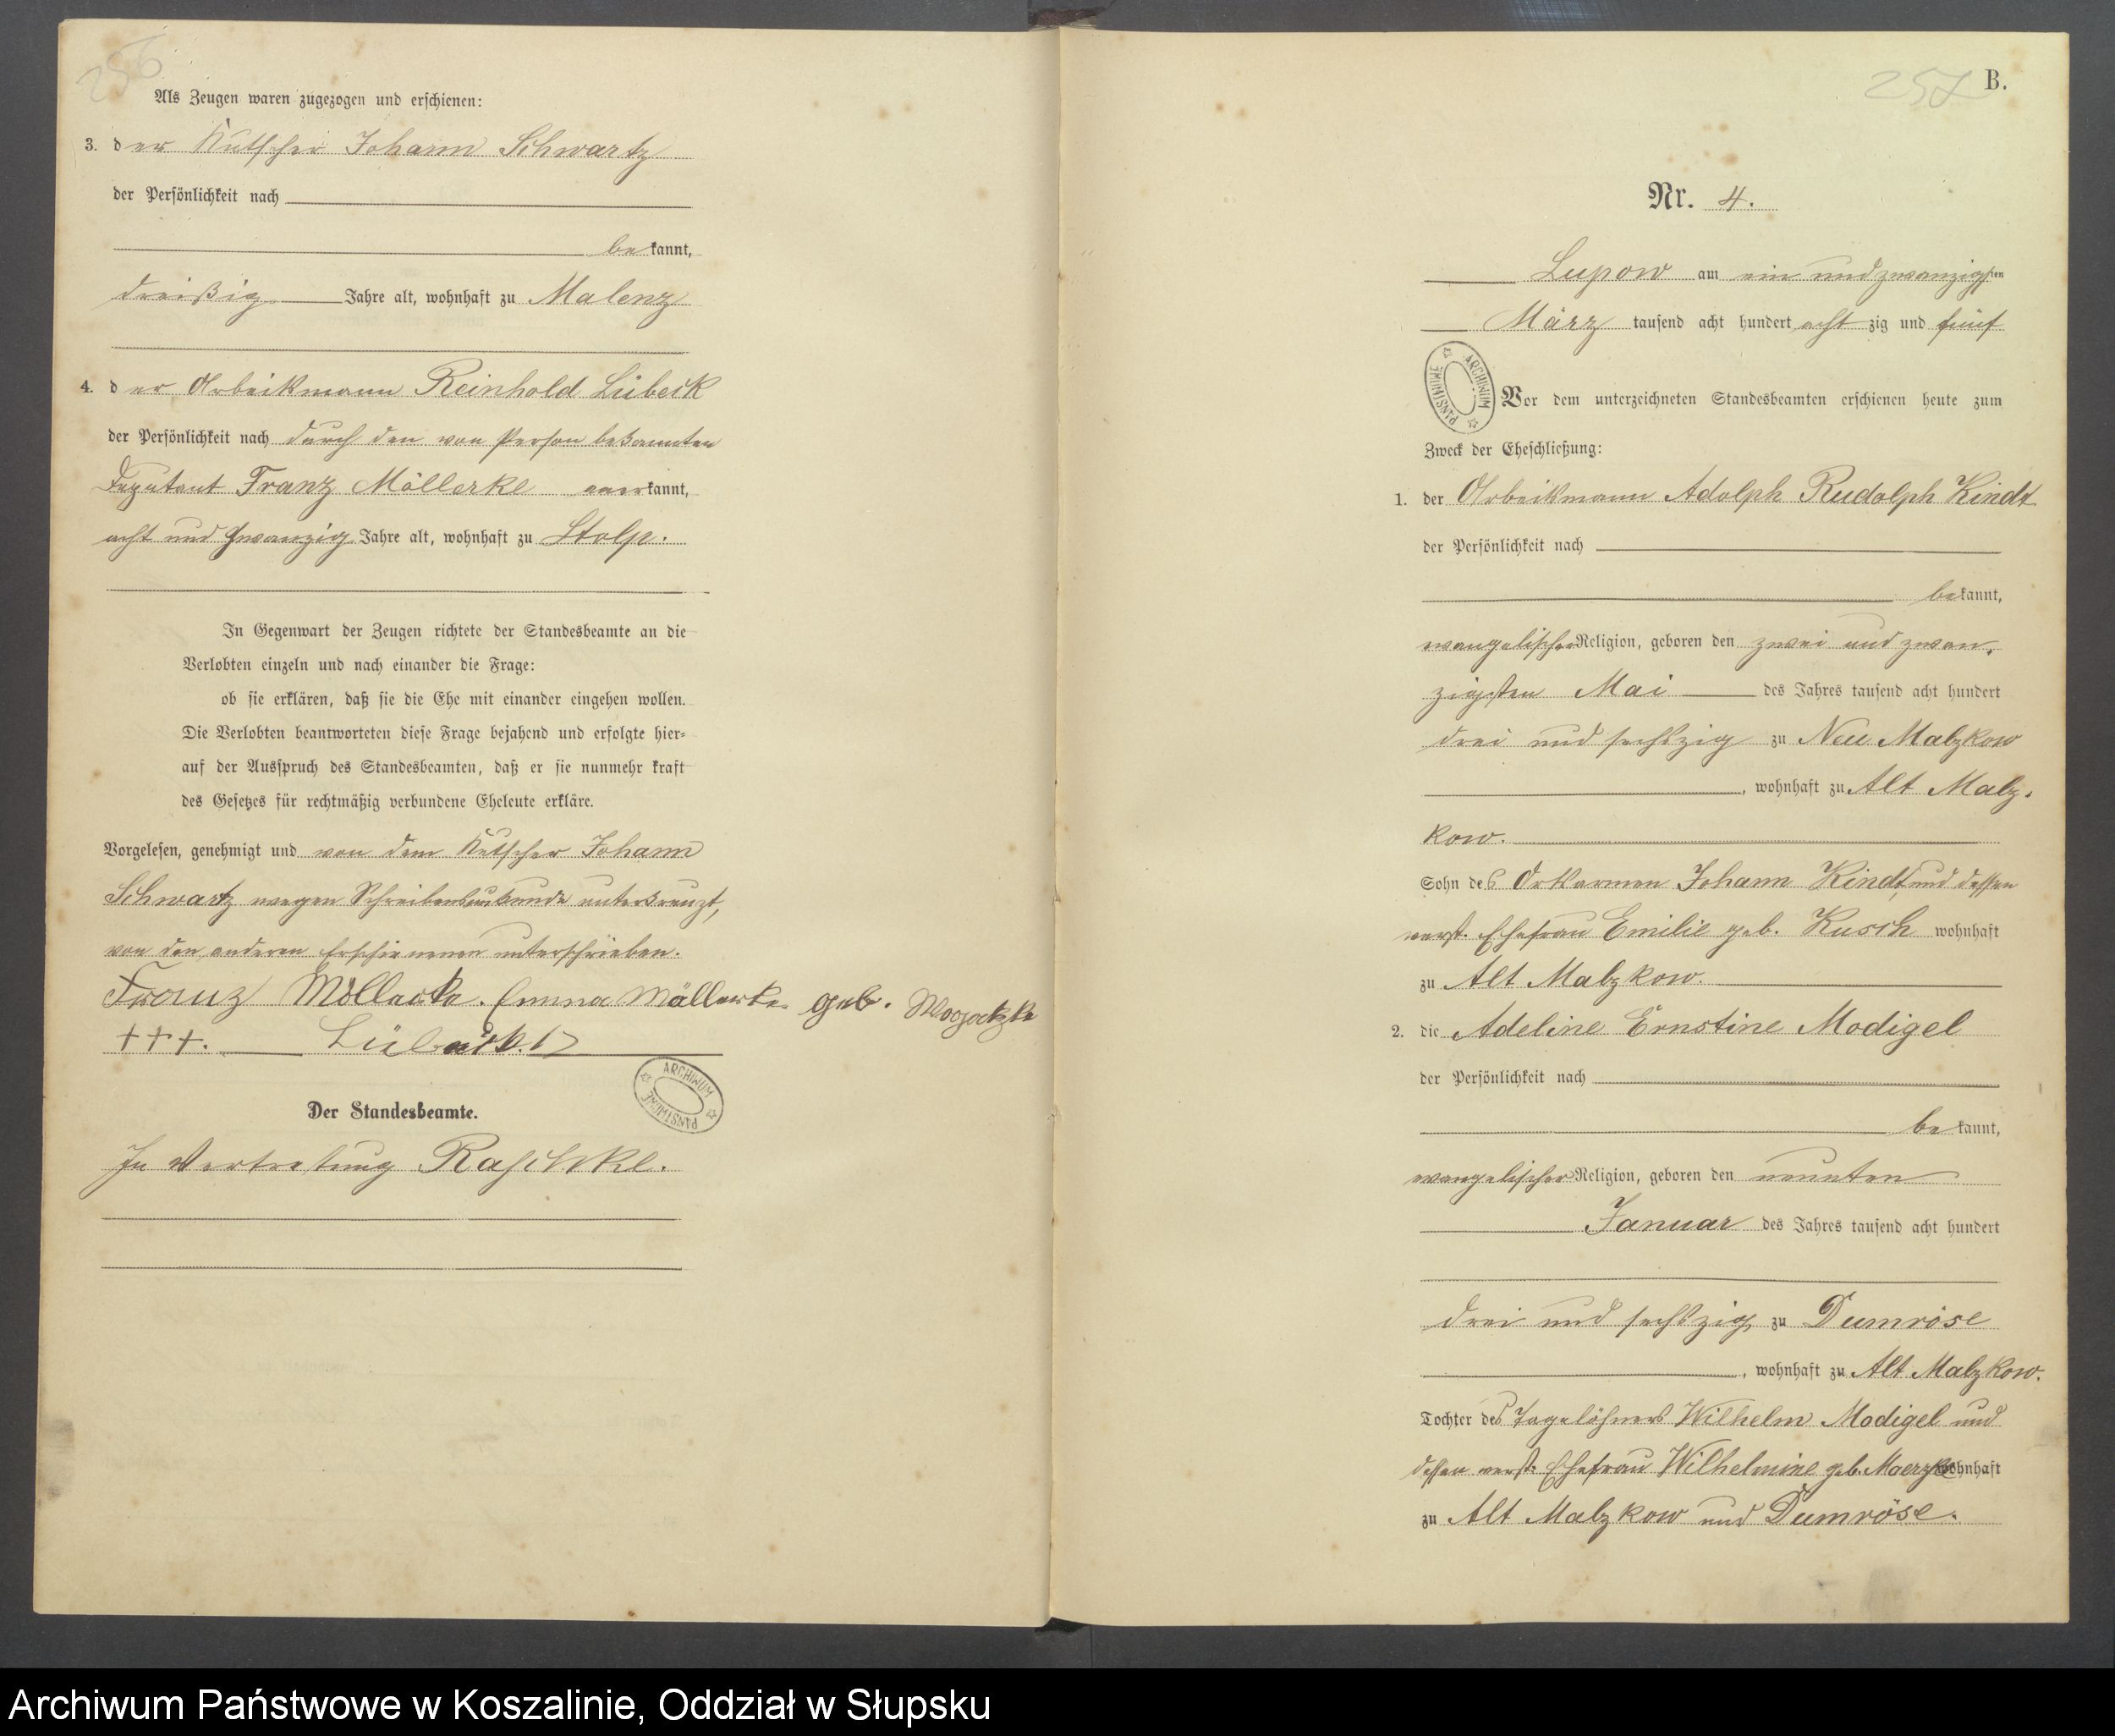 256
Als Zeugen waren zugezogen und erschienen:
3. der Kutscher Johann Schwartz
der Persönlichkeit nach
bekannt,
dreißig Jahre alt, wohnhaft zu Malenz
4. der Arbeitsmann Reinhold Lübeck
der Persönlichkeit nach durch den von Person bekannten
Deputant Franz Möllerke anerkannt,
acht und zwanzig Jahre alt, wohnhaft zu Stolp.
In Gegenwart der Zeugen richtete der Standesbeamte an die
Verlobten einzeln und nach einander die Frage:
ob sie erklären, daß sie die Ehe mit einander eingehen wollen.
Die Verlobten beantworteten diese Frage bejahend und erfolgte hier-
auf der Ausspruch des Standesbeamten, daß er sie nunmehr kraft
des Gesetzes für rechtmäßig verbundene Eheleute erkläre.
Vorgelesen, genehmigt und von dem Kutscher Johann
Schwartz wegen Schreibensunkunde unterkreuzt,
von den anderen Erschienenen unterschrieben.
Franz Möllerke. Emma Möllerke geb.
+++. Lübeck.
Der Standesbeamte.
In Vertretung Raschke.
ARCHIWUM PAŃSTWOWE
257 B.
Nr. 4.
Lupow am ein und zwanzigsten
März tausend acht hundert achtzig und fünf
ARCHIWUM PAŃSTWOWE
Vor dem unterzeichneten Standesbeamten erschienen heute zum
Zweck der Eheschließung:
1. der Arbeitsmann Adolph Rudolph Kindt
der Persönlichkeit nach
bekannt,
evangelischer Religion, geboren den zwei und zwan-
zigsten Mai des Jahres tausend acht hundert
drei und sechszig zu Neu Malzkow
, wohnhaft zu Alt Malz-
kow.
Sohn des Ortsarmen Johann Kindt und dessen
verst. Ehefrau Emilie geb. Kusch wohnhaft
zu Alt Malzkow.
2. die Adeline Ernstine Modigel
der Persönlichkeit nach
bekannt,
evangelischer Religion, geboren den neunten
Januar des Jahres tausend acht hundert
drei und sechszig zu Dumröse
, wohnhaft zu Alt Malzkow.
Tochter des Tagelöhners Wilhelm Modigel und
dessen verst. Ehefrau Wilhelmine geb. Maerzke wohnhaft
zu Alt Malzkow und Dumröse.
Archiwum Państwowe w Koszalinie, Oddział w Słupsku